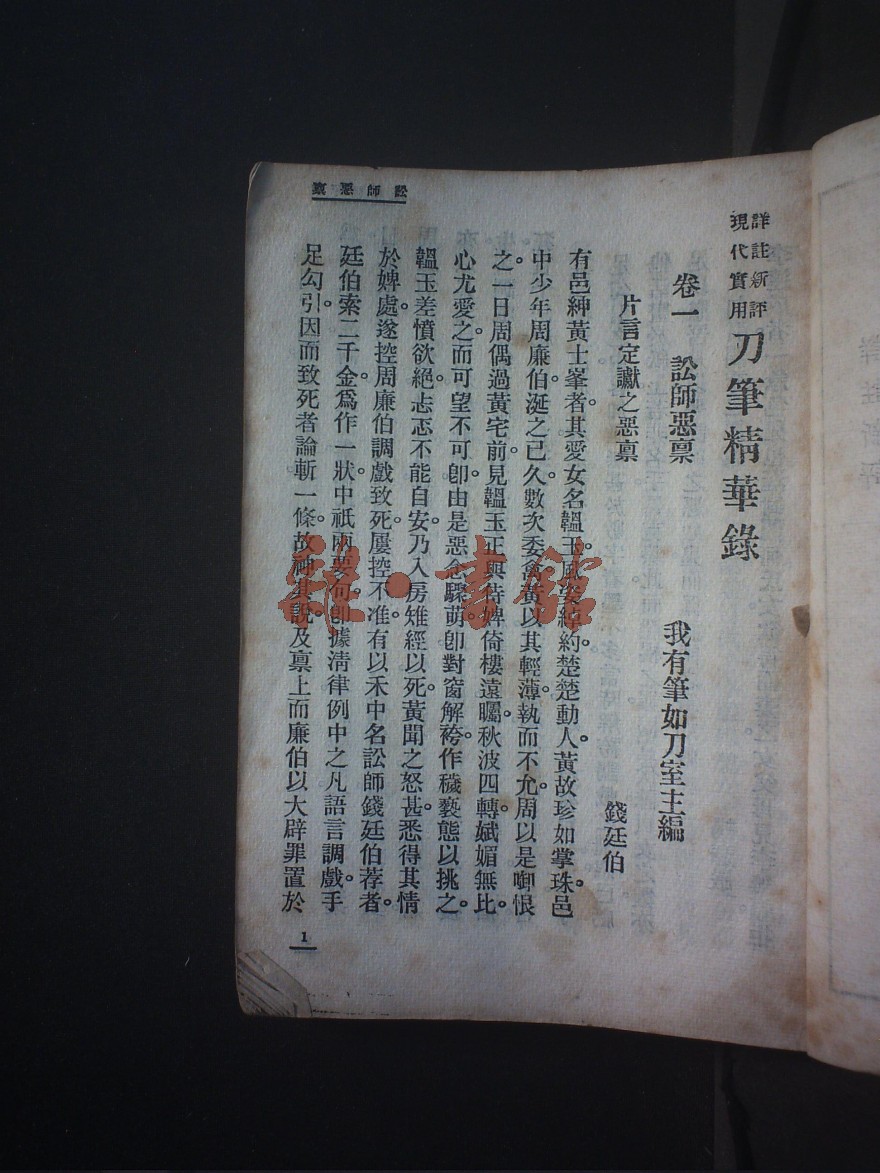 詳註新評
現代實用
刀筆精華錄
我有筆如刀室主編
卷一　訟師惡禀
片言定讞之惡禀
錢廷伯
有邑紳黃士峯者。其愛女名韞玉。風姿綽約。楚楚動人。黃故珍如掌珠。邑
中少年周廉伯涎之已久。數次委禽。黃以其輕薄。執而不允。周以是啣恨
之。一日周偶過黃宅前。見韞玉正與侍婢倚樓遠矚。秋波四轉。娬媚無比。
心尤愛之。而可望不可卽。由是惡念驟萌。卽對窗解袴。作穢褻態以挑之。
韞玉羞憤欲絕。忐忑不能自安。乃入房雉經以死。黃聞之怒甚。悉得其情
於婢處。遂控周廉伯調戲致死。屢控不准。有以禾中名訟師錢廷伯荐者。
廷伯索二千金。爲作一狀。中祇兩要句。卽據淸律例中之凡語言調戲手
足勾引因而致死者論斬一條。故神其說。及禀上。而廉伯以大辟罪置於
訟師惡禀
1
雜·書館